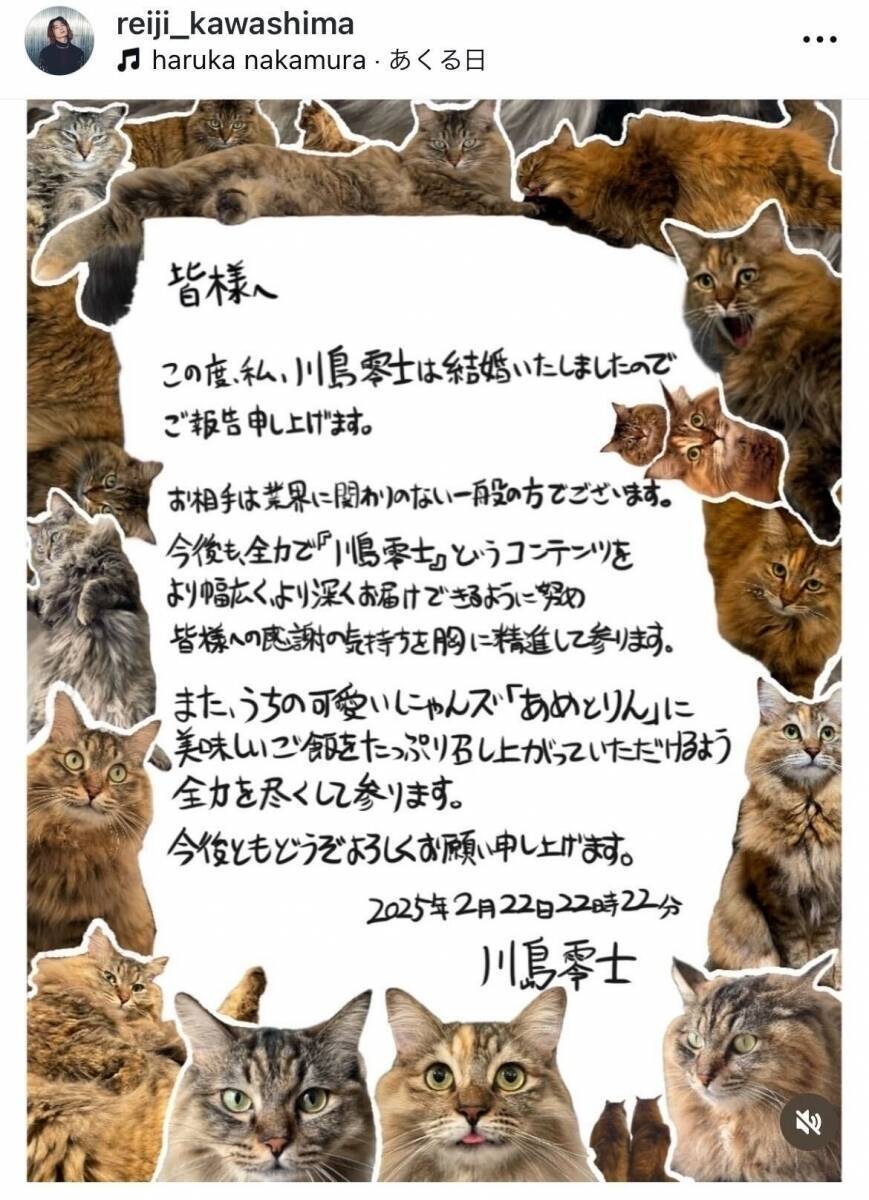 reiji_kawashima
haruka nakamura · あくる日
皆様へ
この度、私、川島零士は結婚いたしましたので
ご報告申し上げます。
お相手は業界に関わりのない一般の方でございます。
今後も、全力で『川島零士』というコンテンツを
より幅広くより深くお届けできるように努め
皆様への感謝の気持ちを胸に精進して参ります。
また、うちの可愛いにゃんズ「あめとりん」に
美味しいご飯をたっぷり召し上がっていただけるよう
全力を尽くして参ります。
今後ともどうぞよろしくお願い申し上げます。
2025年2月22日22時22分
川島零士